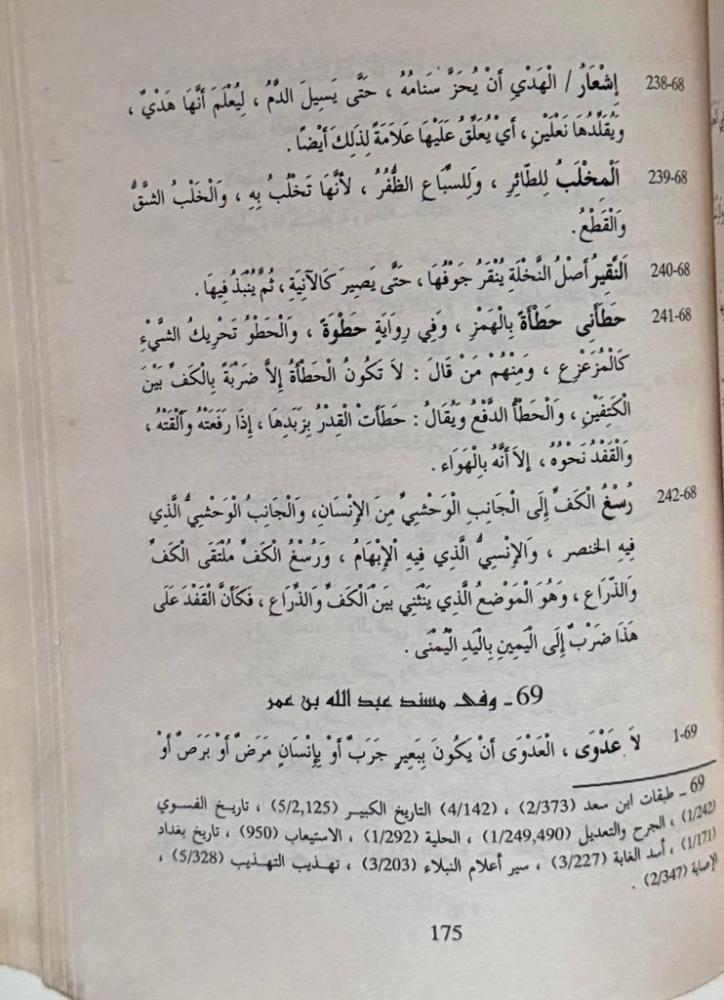 238-68 إِشْعَارُ / الْهَدْيِ أَنْ يُحَزَّ سَنَامُهُ ، حَتَّى يَسِيلَ الدَّمُ ، لِيُعْلَمَ أَنَّهَا هَدْيٌ ،
وَيُقَلِّدُهَا نَعْلَيْنِ ، أَيْ يُعَلَّقُ عَلَيْهَا عَلاَمَةً لِذَلِكَ أَيْضًا .
239-68 اَلْمِخْلَبُ لِلطَّائِرِ ، وَلِلسِّبَاعِ الظُّفُرُ ، لأَنَّهَا تَخْلُبُ بِهِ ، وَالْخَلْبُ الشَّقُّ
وَالْقَطْعُ.
240-68 اَلنَّقِيرُ أَصْلُ النَّخْلَةِ يُنْقَرُ جَوْفُهَا ، حَتَّى يَصِيرَ كَالآنِيَةِ ، ثُمَّ يُنْبَذُ فِيهَا .
241-68 حَطَأَنِى حَطْأَةً بِالْهَمْزِ ، وَفِي رِوَايَةٍ حَطْوَةً ، وَالْحَطْوُ تَحْرِيكُ الشَّيْءِ
كَالْمُزَعْزِعِ ، وَمِنْهُمْ مَنْ قَالَ : لاَ تَكُونُ الْحَطْأَةُ إِلاَّ ضَرْبَةً بِالْكَفِّ بَيْنَ
الْكَتِفَيْنِ ، وَالْحَطْأُ الدَّفْعُ وَيُقَالُ : حَطَأَتْ الْقِدْرُ بِزَبَدِهَا ، إِذَا رَفَعَتْهُ وَأَلْقَتْهُ ،
وَالْقَفْدُ نَحْوُهُ ، إِلاَ أَنَّهُ بِالْهَوَاءِ .
242-68 رُسْغُ الْكَفِّ إِلَى الْجَانِبِ الْوَحْشِيِّ مِنَ الإِنْسَانِ، وَالْجَانِبُ الْوَحْشِيُّ الَّذِي
فِيهِ الخنصر ، وَالإِنْسِيُّ الَّذِي فِيهِ الْإِبْهَامُ ، وَرُسْغُ الْكَفِّ مُلْتَقَى الْكَفِّ
وَالذِّرَاعِ ، وَهُوَ الْمَوْضِعُ الَّذِي يَنْثَنِي بَيْنَ الْكَفِّ وَالذِّرَاعِ ، فَكَأَنَّ الْقَفْدَ عَلَى
هَذَا ضَرْبٌ إِلَى الْيَمِينِ بِالْيَدِ الْيُمْنَى .
69 ـ وفى مسند عبد الله بن عمر
1-69 لاَ عَدْوَى ، الْعَدْوَى أَنْ يَكُونَ بِبَعِيرٍ جَرَبٌ أَوْ بِإِنْسَانٍ مَرَضٌ أَوْ بَرَصٌ أَوْ
69 ـ طبقات ابن سعد (2/373) ، (4/142) التاريخ الكبير (5/2,125) ، تاريخ الفسوي
(1/242) ، الجرح والتعديل (1/249,490) ، الحلية (1/292) ، الاستيعاب (950) ، تاريخ بغداد
(1/171) ، أسد الغابة (3/227) ، سير أعلام النبلاء (3/203) ، تهذيب التهذيب (5/328) ،
الإصابة (2/347) .
175